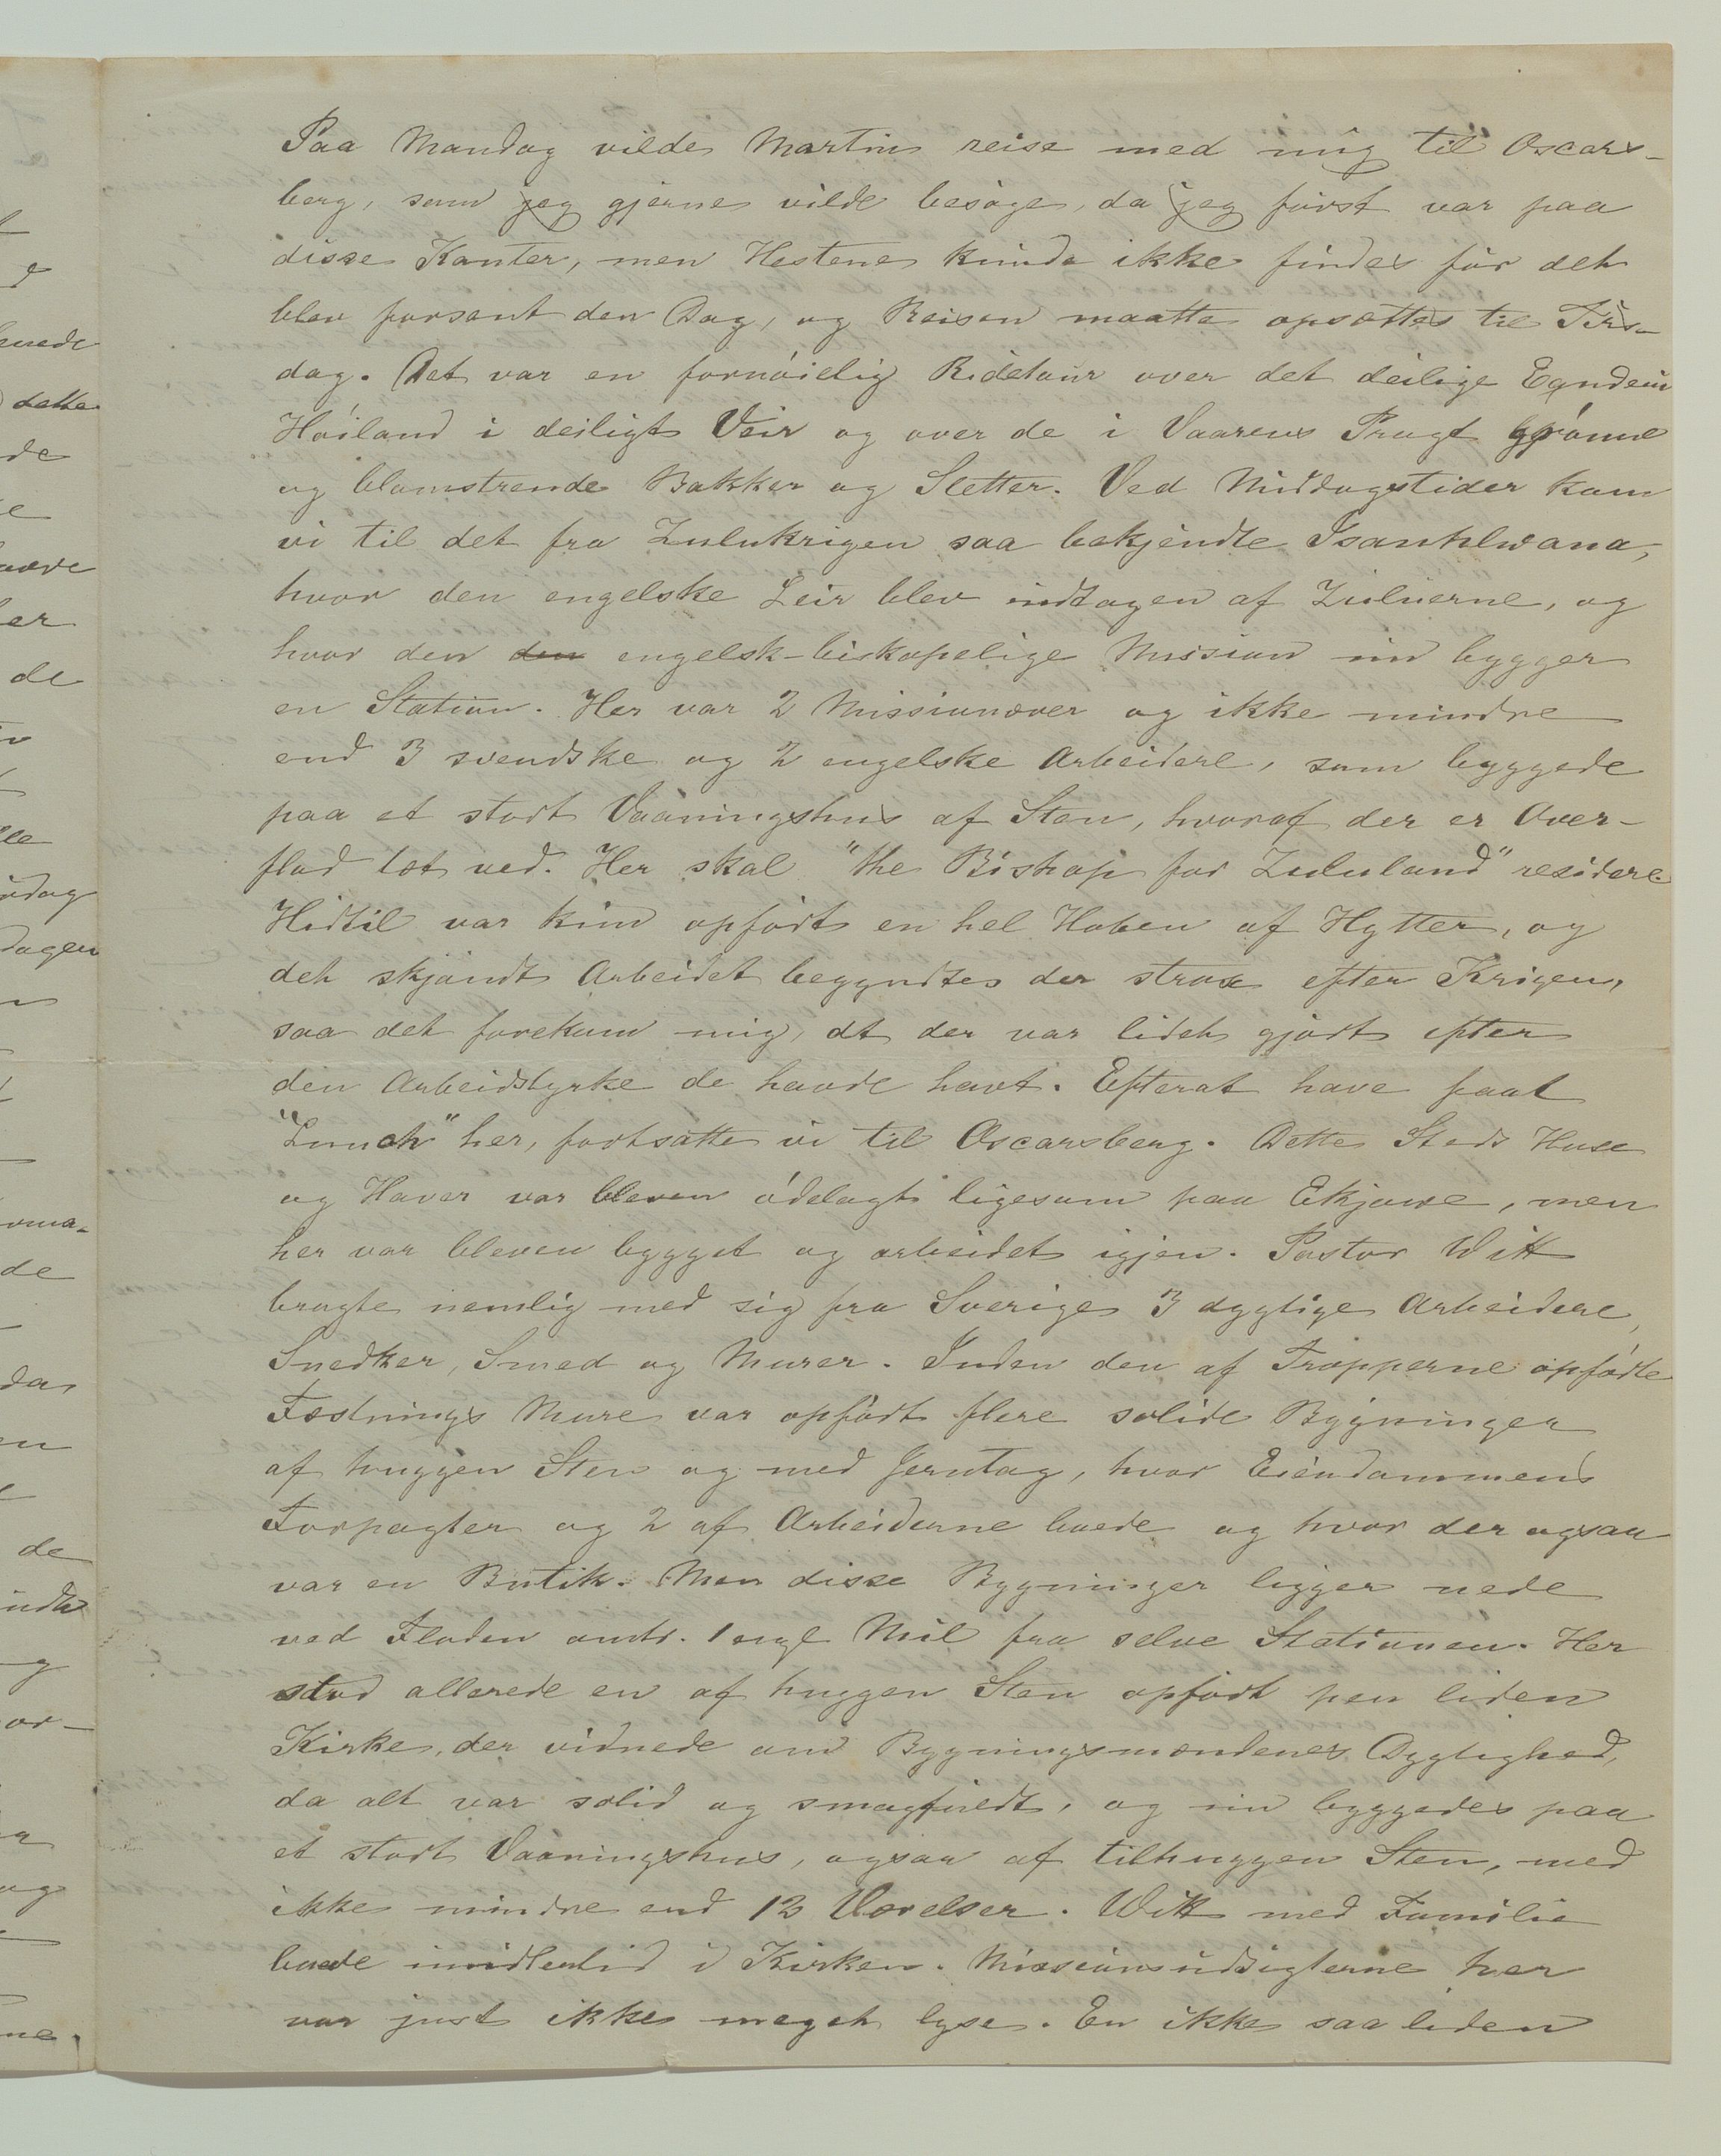 Paa Mandag vilde Martin reise med mig til Oscars-
berg, som jeg gjerne vilde besøge, da jeg først var paa
disse Kanter, men Hestene kunde ikke findes før det
blev forsent den Dag, og Reisen maatte opsættes til Tirs-
dag. Det var en fornøielig Ridetour over det deilige Eqndeni
Høiland i deiligt Veir og over de i Vaarens Pragt grønne
og blomstrende Bakker og Sletter. Ved Middagstider kom
vi til det fra Zulukrigen saa bekjendte Isanhlwana,
hvor den engelske Leir blev indtagen af Zuluerne, og
hvor den den engelsk-biskopelige Mission nu bygger
en Station. Her var 2 Missionærer og ikke mindre
end 3 svendske og 2 engelske Arbeidere, som byggede
paa et stort Vaaningshus af Sten, hvoraf der er Over-
flod tæt ved. Her skal "the Bishop for Zululand" residere.
Hidtil var kun opført en hel Hoben af Hytter, og
det skjøndt Arbeidet begyndtes der strax efter Krigen,
saa det forekom mig, at der var lidet gjort efter
den Arbeidstyrke de havde havt. Efterat have faaet
"Lunch" her, fortsatte vi til Oscarsberg. Dette Steds Huse
og Haver var bleven ødelagt ligesom paa Ekjowe, men
her var bleven bygget og arbeidet igjen. Pastor Witt
bragte nemlig med sig fra Sverige 3 dygtige Arbeidere,
Snedker, Smed og Murer. Inden den af Tropperne opførte
Fæstnings Mure var opført flere solide Bygninger
af huggen Sten og med Jerntag, hvor Eiendommens
Forpagter og 2 af Arbeiderne boede og hvor der ogsaa
var en Butik. Men disse Bygninger ligger nede
ved Floden omtr. 1 engl Mil fra selve Stationen. Her
stod allerede en af huggen Sten opført pen liden
Kirke, der vidnede om Bygningsmændenes Dygtighed,
da alt var solid og smagfuldt, og nu byggedes paa
et stort Vaaningshus, ogsaa af tilhuggen Sten, med
ikke mindre end 12 Værelser. Witt med Familie
boede imidlertid i Kirken. Missionsudsigterne her
var just ikke meget lyse. En ikke saa liden